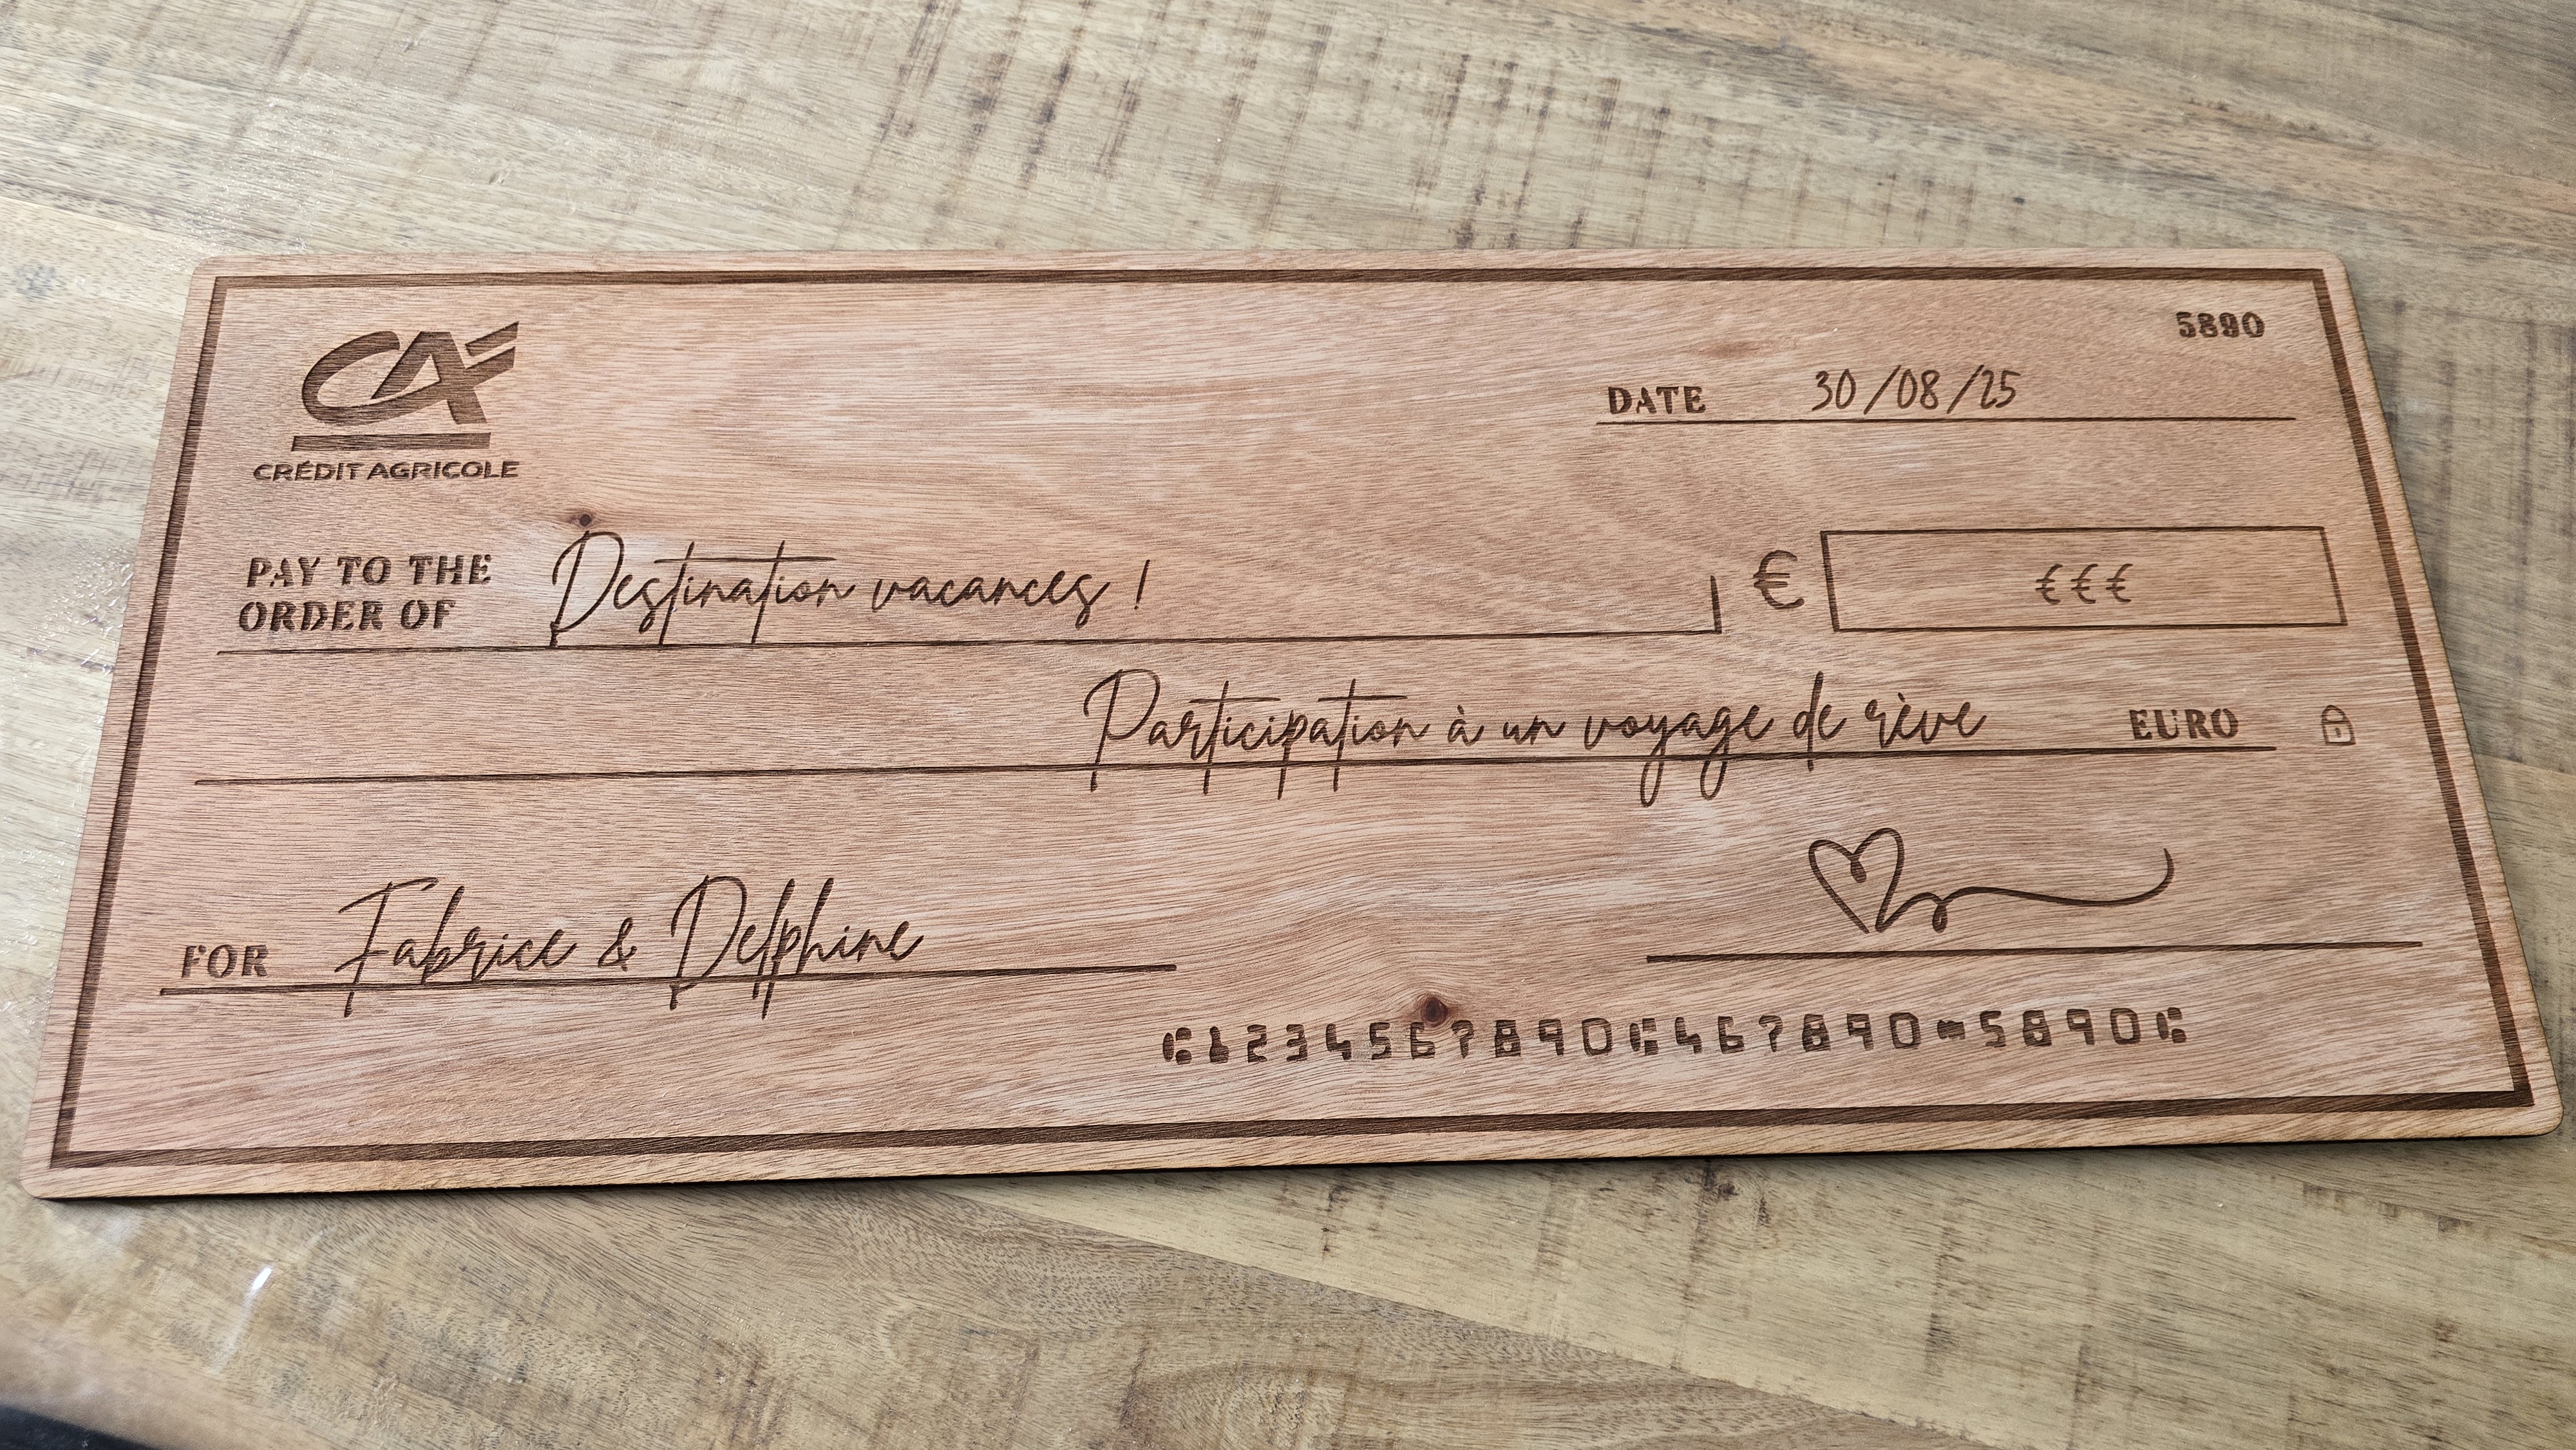 CA
CRÉDIT AGRICOLE
5890
DATE 30/08/25
PAY TO THE
ORDER OF Destination vacances ! € €€€
Participation à un voyage de rêve EURO
FOR Fabrice & Delphine
⑆1234567890⑆467890⑉5890⑆